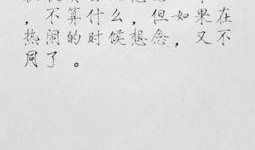 ，不算什么，但如果在
热闹的时候想念，又不
同了。